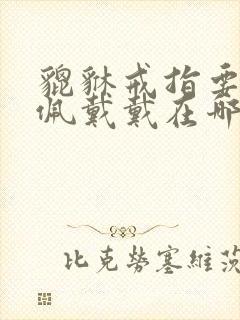 貔貅戒指要
佩戴戴在哪
比克勞塞維茨